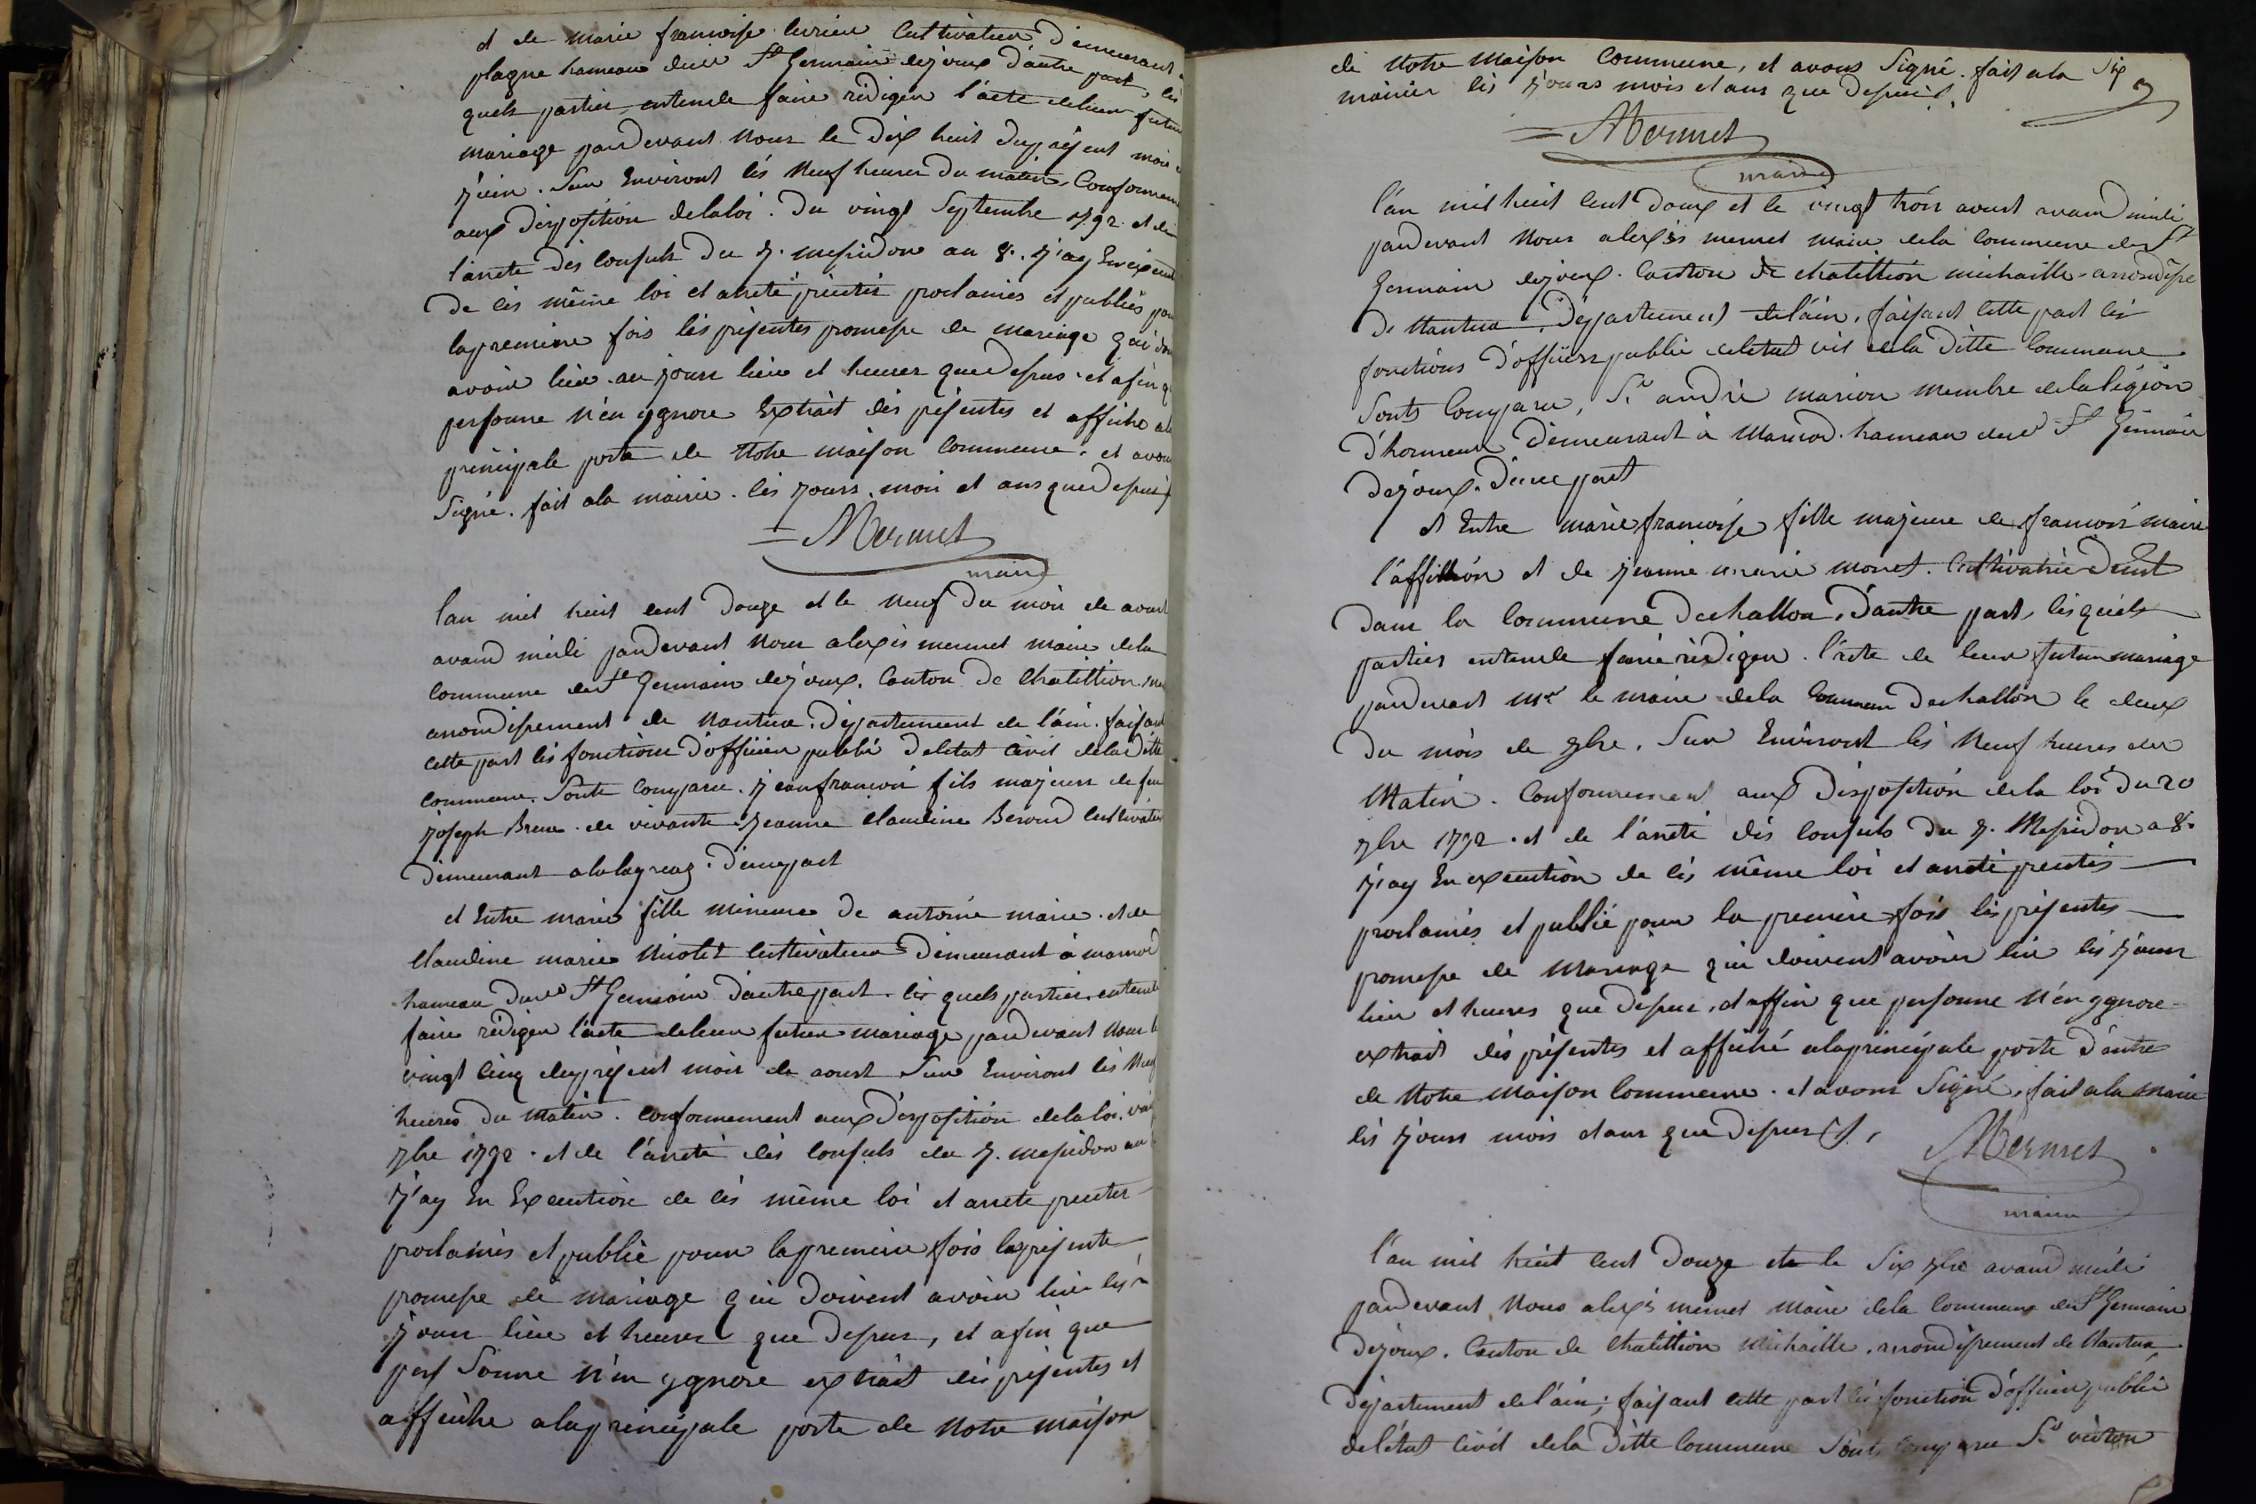 et de marie francoise cultivateur demeurant
plagne hameau dud St Germain dejoux d'autre part, les
quels parties entende faire rédiger l'acte deleur futur
mariage pardevant nous le dix huit du présent mois
sur Environt lés neuf heures du matin, Conforme
aux disposition delaloi. du vingt Septembre 1792 et de
l'arrete des Consuls du 7. messidor an 8. j'ay En
de cés même loi et areté proclamés et publiés pour
lapremiere fois lés présentes promesse de mariage qui
avoir lieu au jours lieu et heures que dessus et afin
personne n'en ygnore Extrait dés présentes et affiche ala
principale porte de Notre maison Commune, et avons
Signé. fait ala mairie. lés jours, mois et ans que dessus
Mermet
maire
l'an mil huit cent douze et le neuf du mois de avout
avand midi pardevant nous alexis mermet maire dela
Commune de St Germain dejoux. Canton de Chatillion
arrondissement de Nantua. département de l'ain. faisant
cette part lés fonctions d'officier public deletat Civil dela ditte
Commune. Sonts Comparu. jeanfrancois fils majeure de feu
joseph de vivante jeanne Claudine Cultivateur
demeurant d'unepart
et Entre marie fille mineure de antoine maire. et de
Claudine marie Cultivateur demeurant à marnod
hameau dud St Germain d'autre part. lés quels parties entende
faire rédiger l'acte deleur futur mariage pardevant nous le
vingt Cinq du présent mois de aoust Sur Environt lés neuf
heures du matin. Conformement aux disposition delaloi
7bre 1792. et de l'arreté dés Consuls du 7. messidor an
j'ay En Execution de cés même loi et arrete
proclamés et publié pour lapremiere fois la présente
promesse de mariage qui doivent avoir lieu lés
jours lieu et heures que dessus, et afin que
pers Sonne n'en ygnore extrait dés présentes et
affiche alaprincipale porte de Notre maison
de Notre maison Commune, et avons Signé. fait ala
mairie lés jours mois et ans que dessus
Mermet
maire
l'an mil huit Cent douze et le vingt trois avout avand midi
pardevant Nous alexis mermet maire dela Commune de St
Germain dejoux. Canton de Chatillion michaille
de Nantua, département del'ain, faisant cette part lés
fonctions d'officier public deletat civil dela ditte Commune
Sonts Comparu, Sr andré marion membre delalégion
d'honneur demeurant à Marnod. hameau dud St Germain
dejoux. d'une part
et Entre marie francoise fille majeure de francois marie
et de jeanne marie monet. Cultivatrice
dans la Commune dechallon, d'autre part, lésquels
parties entende faire rédiger l'acte de leur futur mariage
pardevant Mr le maire dela Commun dechallon le deux
du mois de 7bre. Sur Environt lés neuf heures du
Matin. Conformement aux disposition dela loi du 20
7bre 1792. et de l'arreté dés Consuls du 7. Messidor a 8.
j'ay En execution de cés même loi et arreté
proclamés et publié pour la premiere fois lés présentes
promesse de Mariage qui doivent avoir lieu lés jours
lieu et heures que dessus, et affin que personne n'en ygnore
extrait dés présentes et affiché alaprincipale porte d'entre
de Notre Maison Commune. et avons Signé, fait ala mairie
lés jours mois et ans que dessus
Mermet
maire
l'an mil huit Cent douze et le Six 7bre avand midi
pardevant Nous alexis mermet maire dela Commune de St Germain
Dejoux. Canton de Chatillion Michaille. arrondissement de Nantua
département del'ain; faisant cette part lés fonction d'officier public
deletat Civil dela ditte Commune Sonts Comparu Sr